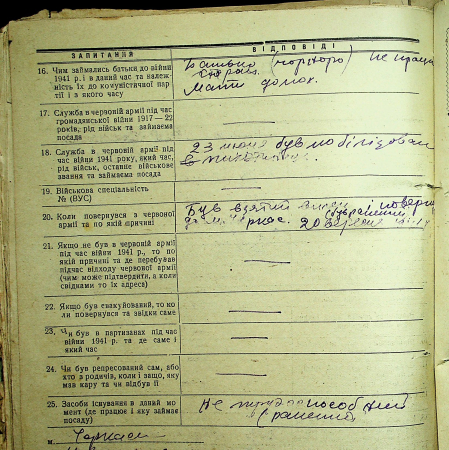 ЗАПИТАННЯ ВІДПОВІДІ
16. Чим займались батьки до війни
1941 р. і в даний час та належ-
ність їх до комуністичної пар-
тії і з якого часу
Батько не працює
Мати домох.
17. Служба в червоній армії під час
громадянської війни 1917 — 22
років, рід військ та займаєма
посада
18. Служба в червоній армії під
час війни 1941 року, який час,
рід військ, останнє військове
звання та займаєма посада
23 июня був мобілізован
19. Військова спеціальність
№ (ВУС)
20. Коли повернувся з червоної
армії та по якій причині
Був взятий
20
21. Якщо не був в червоній армії
під час війни 1941 р., то по
якій причині та де перебував
підчас відходу червоної армії
(чим може підтвердити, а коли
свідками то їх адреса)
22. Якщо був евакуйований, то ко
ли повернувся та звідки саме
23. Чи був в партизанах під час
війни 1941 р. та де саме і
який час
24. Чи був репресований сам, або
хто з родичів, коли і защо, яку
мав кару та чи відбув її
25. Засоби існування в даний мо
мент (де працює і яку займає
посаду)
Не трудоспособний
(ранений)
м. Черкаси